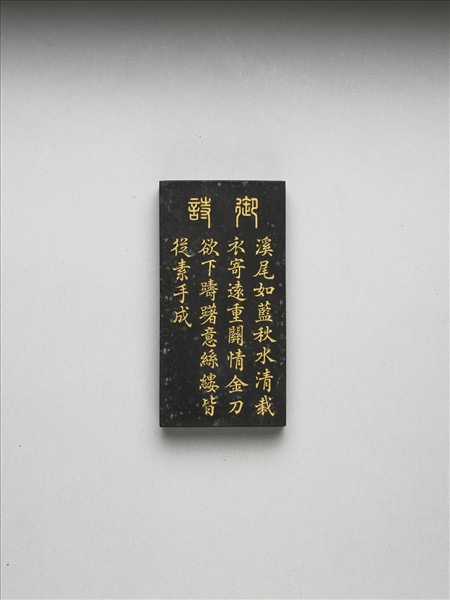 御詩
溪尾如藍秋水清裁
衣寄遠重關情金刀
欲下躊躇意絲縷皆
從素手成